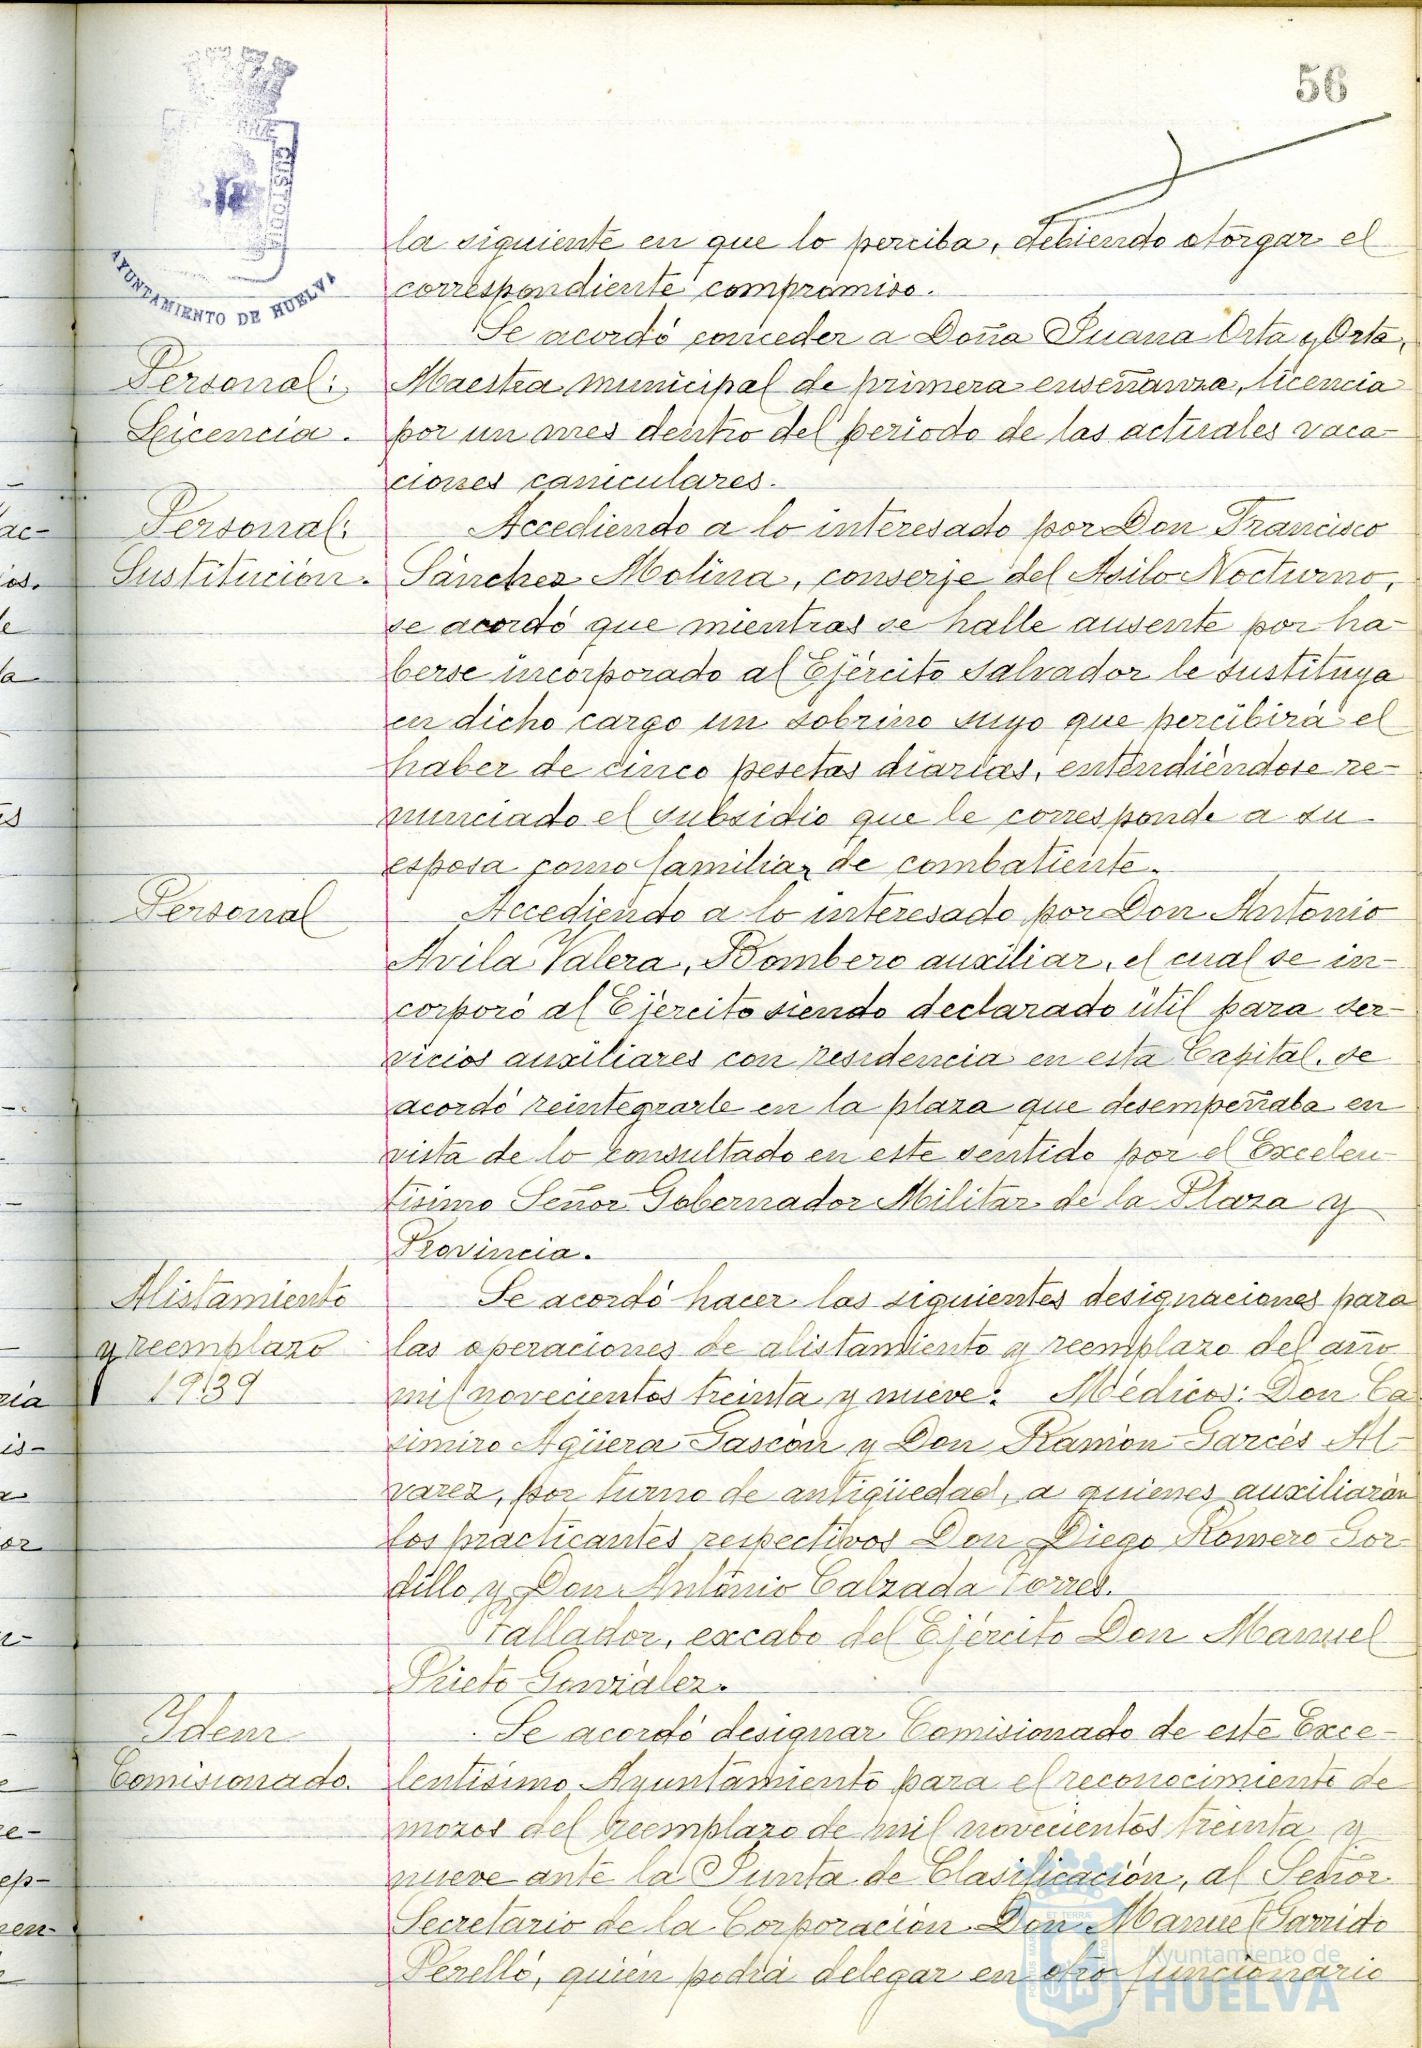 56
TERRÆ
CUSTODIA
AYUNTAMIENTO DE HUELVA
la siguiente en que lo perciba, debiendo otorgar el
correspondiente compromiso.
Personal:
Licencia.
Se acordó conceder a Doña Juana Orta y Orta,
Maestra municipal de primera enseñanza, licencia
por un mes dentro del periodo de las actuales vaca-
ciones caniculares.
Personal:
Sustitución.
Accediendo a lo interesado por Don Francisco
Sánchez Molina, conserje del Asilo Nocturno,
se acordó que mientras se halle ausente por ha-
berse incorporado al Ejército Salvador le sustituya
en dicho cargo un sobrino suyo que percibirá el
haber de cinco pesetas diarias, entendiéndose re-
nunciado el subsidio que le corresponde a su
esposa como familiar de combatiente.
Personal
Accediendo a lo interesado por Don Antonio
Avila Valera, Bombero auxiliar, el cual se in-
corporó al Ejército siendo declarado útil para ser-
vicios auxiliares con residencia en esta Capital, se
acordó reintegrarle en la plaza que desempeñaba en
vista de lo consultado en este sentido por el Excelen-
tísimo Señor Gobernador Militar de la Plaza y
Provincia.
Alistamiento
y reemplazo
1939
Se acordó hacer las siguientes designaciones para
las operaciones de alistamiento y reemplazo del año
mil novecientos treinta y nueve: Médicos: Don Ca
simiro Agüera Gascón y Don Ramón Garcés Al-
varez, por turno de antigüedad, a quienes auxiliarán
los practicantes respectivos Don Diego Romero Gor-
dillo y Don Antonio Calzada Torres.
Tallador, excabo del Ejército Don Manuel
Prieto González.
Idem
Comisionado.
Se acordó designar Comisionado de este Exce-
lentísimo Ayuntamiento para el reconocimiento de
mozos del reemplazo de mil novecientos treinta y
nueve ante la Junta de Clasificación, al Señor
Secretario de la Corporación Don Manuel Garrido
Perelló, quién podrá delegar en otro funcionario
Ayuntamiento de
HUELVA